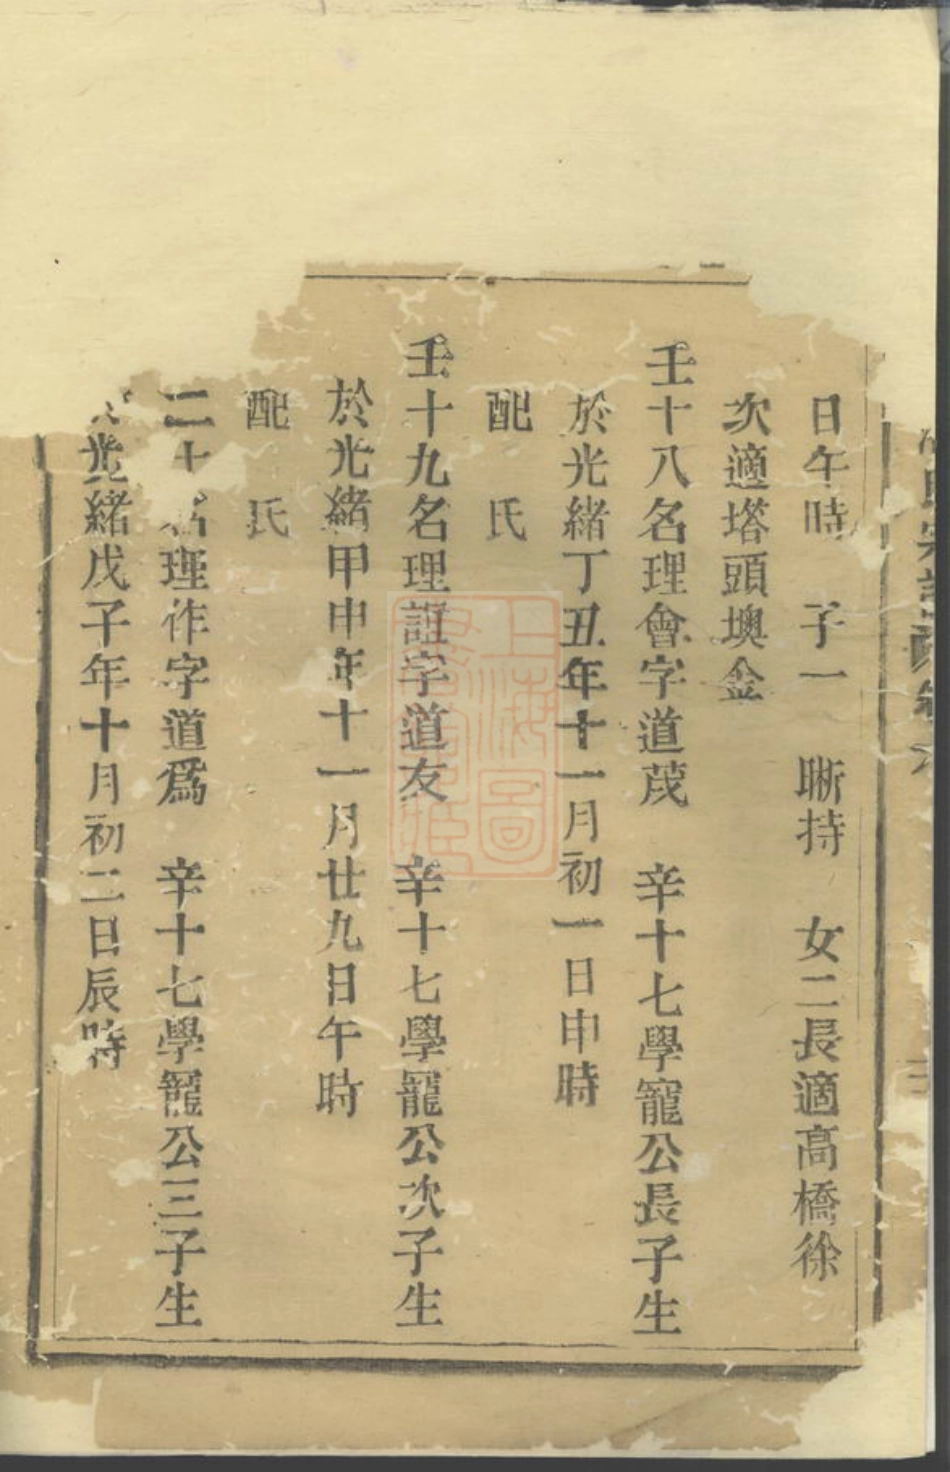 日午時 子一 晣持 女二長適高橋徐
次適塔頭墺金
壬十八名理會字道茂 辛十七學寵公長子生
於光緒丁丑年十一月初一日申時
配 氏
壬十九名理誼字道友 辛十七學寵公次子生
於光緒甲申年十一月廿九日午時
配 氏
二十名理祚字道爲 辛十七學寵公三子生
光緒戊子年十月初二日辰時
上海圖